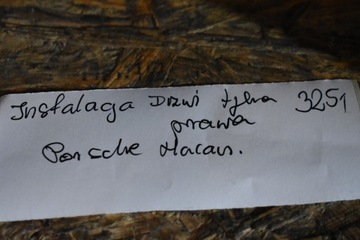 Instalaga Drzwi tylna 3251
prawa
Porsche Macan.